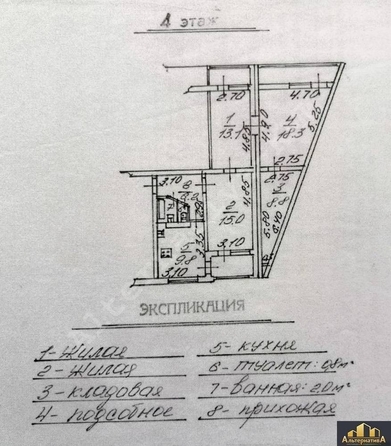 4 этаж
2.70
4.70
1
13.1
4.85
4.90
4
18.3
5.25
2.75
2.75
3
8.8
3.10
8
2
15.0
4.85
5.80
6.40
3.35
5
9.8
3.10
3.10
ЭКСПЛИКАЦИЯ
1-Жилая
2- жилая
3- кладовая
4- подсобное
5- кухня
6- туалет: 0,8 м²
7- ванная: 2.0 м²
8- прихожая
АльтернативА